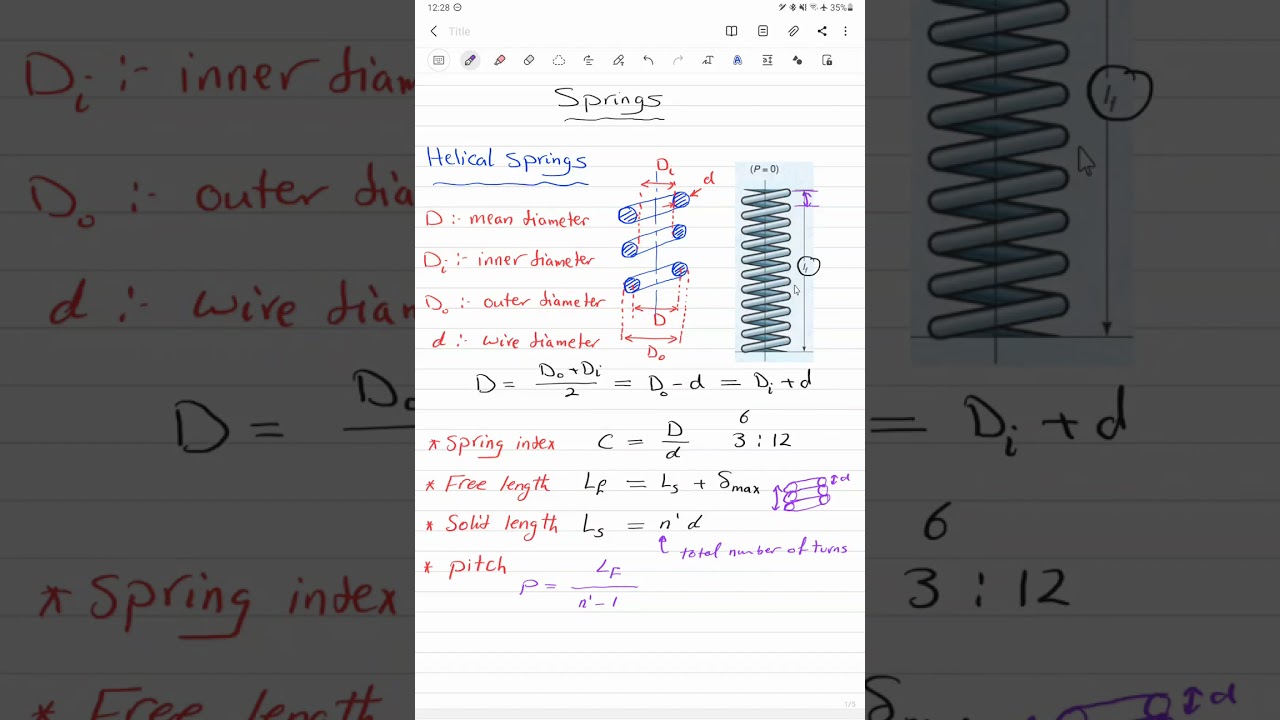 12:28
35%
Title
Springs
Helical springs
D :- mean diameter
Di :- inner diameter
Do :- outer diameter
d :- wire diameter
Di
d
D
Do
(P = 0)
D = (Do + Di)/2 = Do - d = Di + d
* Spring index C = D/d 3 : 12
6
* Free length Lf = Ls + δmax
d
* Solid length Ls = n' d
total number of turns
* pitch P = LF/(n' - 1)
1/5
Di :- inner diam
Do :- outer dia
d :- wire diam
D = Do
= Di + d
6
* Spring index
3 : 12
* Free length
d